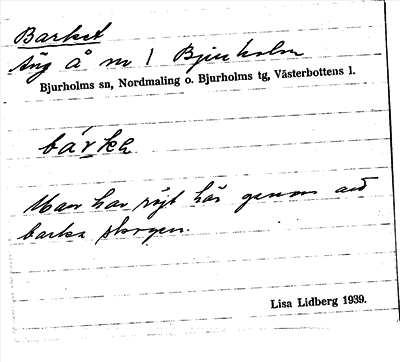 Barket
Äng å nr 1 Bjurholm
Bjurholms sn, Nordmaling o. Bjurholms tg, Västerbottens l.
bárkɐ
Man har röjt här genom att
barka skogen.
Lisa Lidberg 1939.